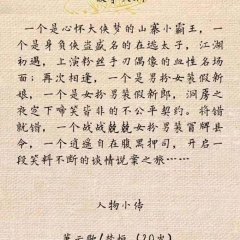 一个是心怀大侠梦的山寨小霸王，一
个是身负侠盗威名的在逃太子，江湖
初遇，上演粉丝手刃偶像的血性名场
面；再次相逢，一个是男扮女装假新
娘，一个是女扮男装假新郎，洞房之
夜定下啼笑皆非的不公平契约。将错
就错，一个战战兢兢女扮男装冒牌县
令，一个逍遥自在腹黑押司，开启一
段笑料不断的谈情说案之旅……
人物小传